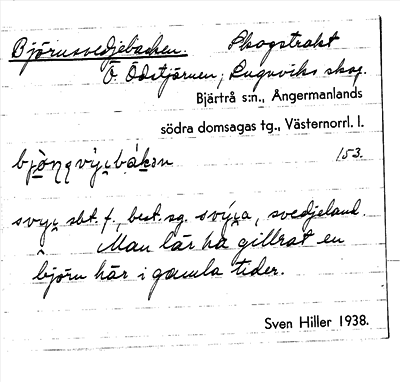 Björnsvedjebacken. Skogstrakt
Ö. Ödstjärnen, Lugnviks skog.
Bjärtrå s:n., Ångermanlands
södra domsagas tg., Västernorrl. l.
153.
sbt. f., best. sg. svedjeland.
Man lär ha gillrat en
björn här i gamla tider.
Sven Hiller 1938.